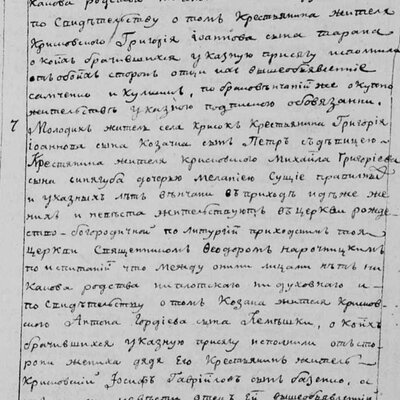 какова родства ни
по Свидѣтельству о томъ Крестьянина жителя
Крисовского Григорія Іоаннова сына Тарана
о коихъ брачившихся указную присягу исполнили
отъ обѣихъ сторонъ отци ихъ вышеобъявленніе
Савченко и Кулишъ, по браковѣнчаній же окупно
жительствѣ указною подпискою обовязанни.
7 Молодикъ житель села Крисокъ Крестьянина Григорія
Іоаннова сына Козача сынъ Петръ съ дѣвицею
Крестьянина жителя Крисовского Михайла Григоріева
сына дочерью Меланіею Сущіе правилныхъ
и указныхъ лѣтъ вѣнчани въ приходѣ идѣже же
нихъ и невѣста жительствуютъ въ церкви рожде
ство-богородичной по литургіи приходскимъ тоя
церкви Священникомъ Феодоромъ Нарочницкимъ
по испитаній что между оними лицами нѣтъ ни
какова родства ни плотского ни духовного и
по Свидѣтельству о томъ Козака жителя Крисов
ского Антона Гордіева сына о коихъ
брачившихся указную присягу исполнили отъ сто
рони жениха дядя его Крестьянинъ житель
Крисовскій Іосифъ Гавріиловъ сынъ а
отецъ Ей вышеобъявленній